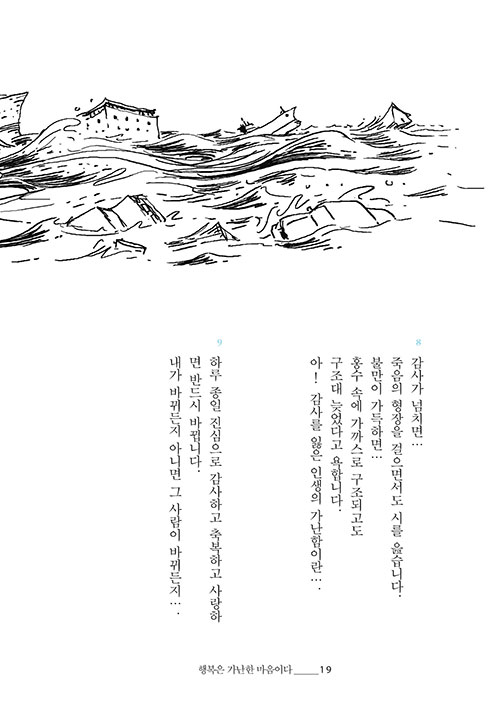 8
감사가 넘치면…
죽음의 형장을 걸으면서도 시를 읊습니다.
불만이 가득하면…
홍수 속에 가까스로 구조되고도
구조대 늦었다고 욕합니다.
아! 감사를 잃은 인생의 가난함이란….
9
하루 종일 진심으로 감사하고 축복하고 사랑하
면 반드시 바뀝니다.
내가 바뀌든지 아니면 그 사람이 바뀌든지….
행복은 가난한 마음이다 _____ 19